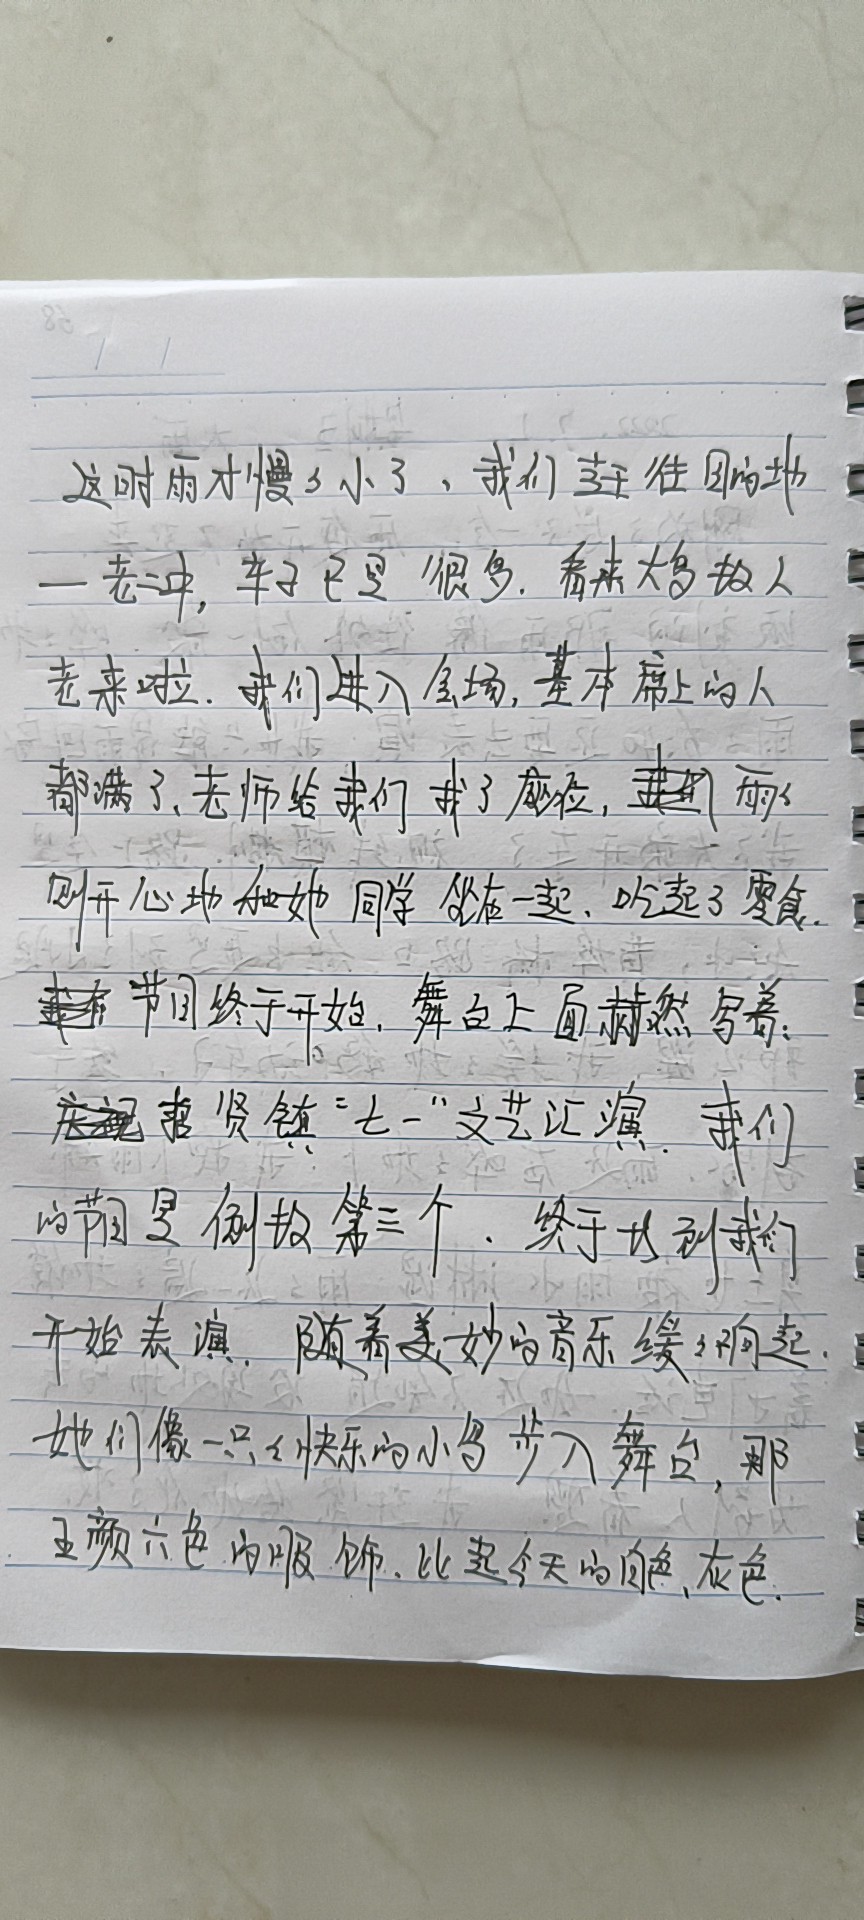 这时雨才慢々小了、我们去往目的地
一老二中，车子已是很多．看来大多数人
老来啦．我们进入会场，基本席上的人
都满了、老师给我们找了座位，雨々
则开心地和她同学坐在一起、吃起了零食．
节目终于开始．舞台上面赫然写着：
贤镇“七一”文艺汇演．我们
的节目是倒数第三个．终于到我们
开始表演．随着美妙的音乐缓々响起．
她们像一只々快乐的小鸟步入舞台，那
五颜六色的服饰、比起今天的白色、灰色．